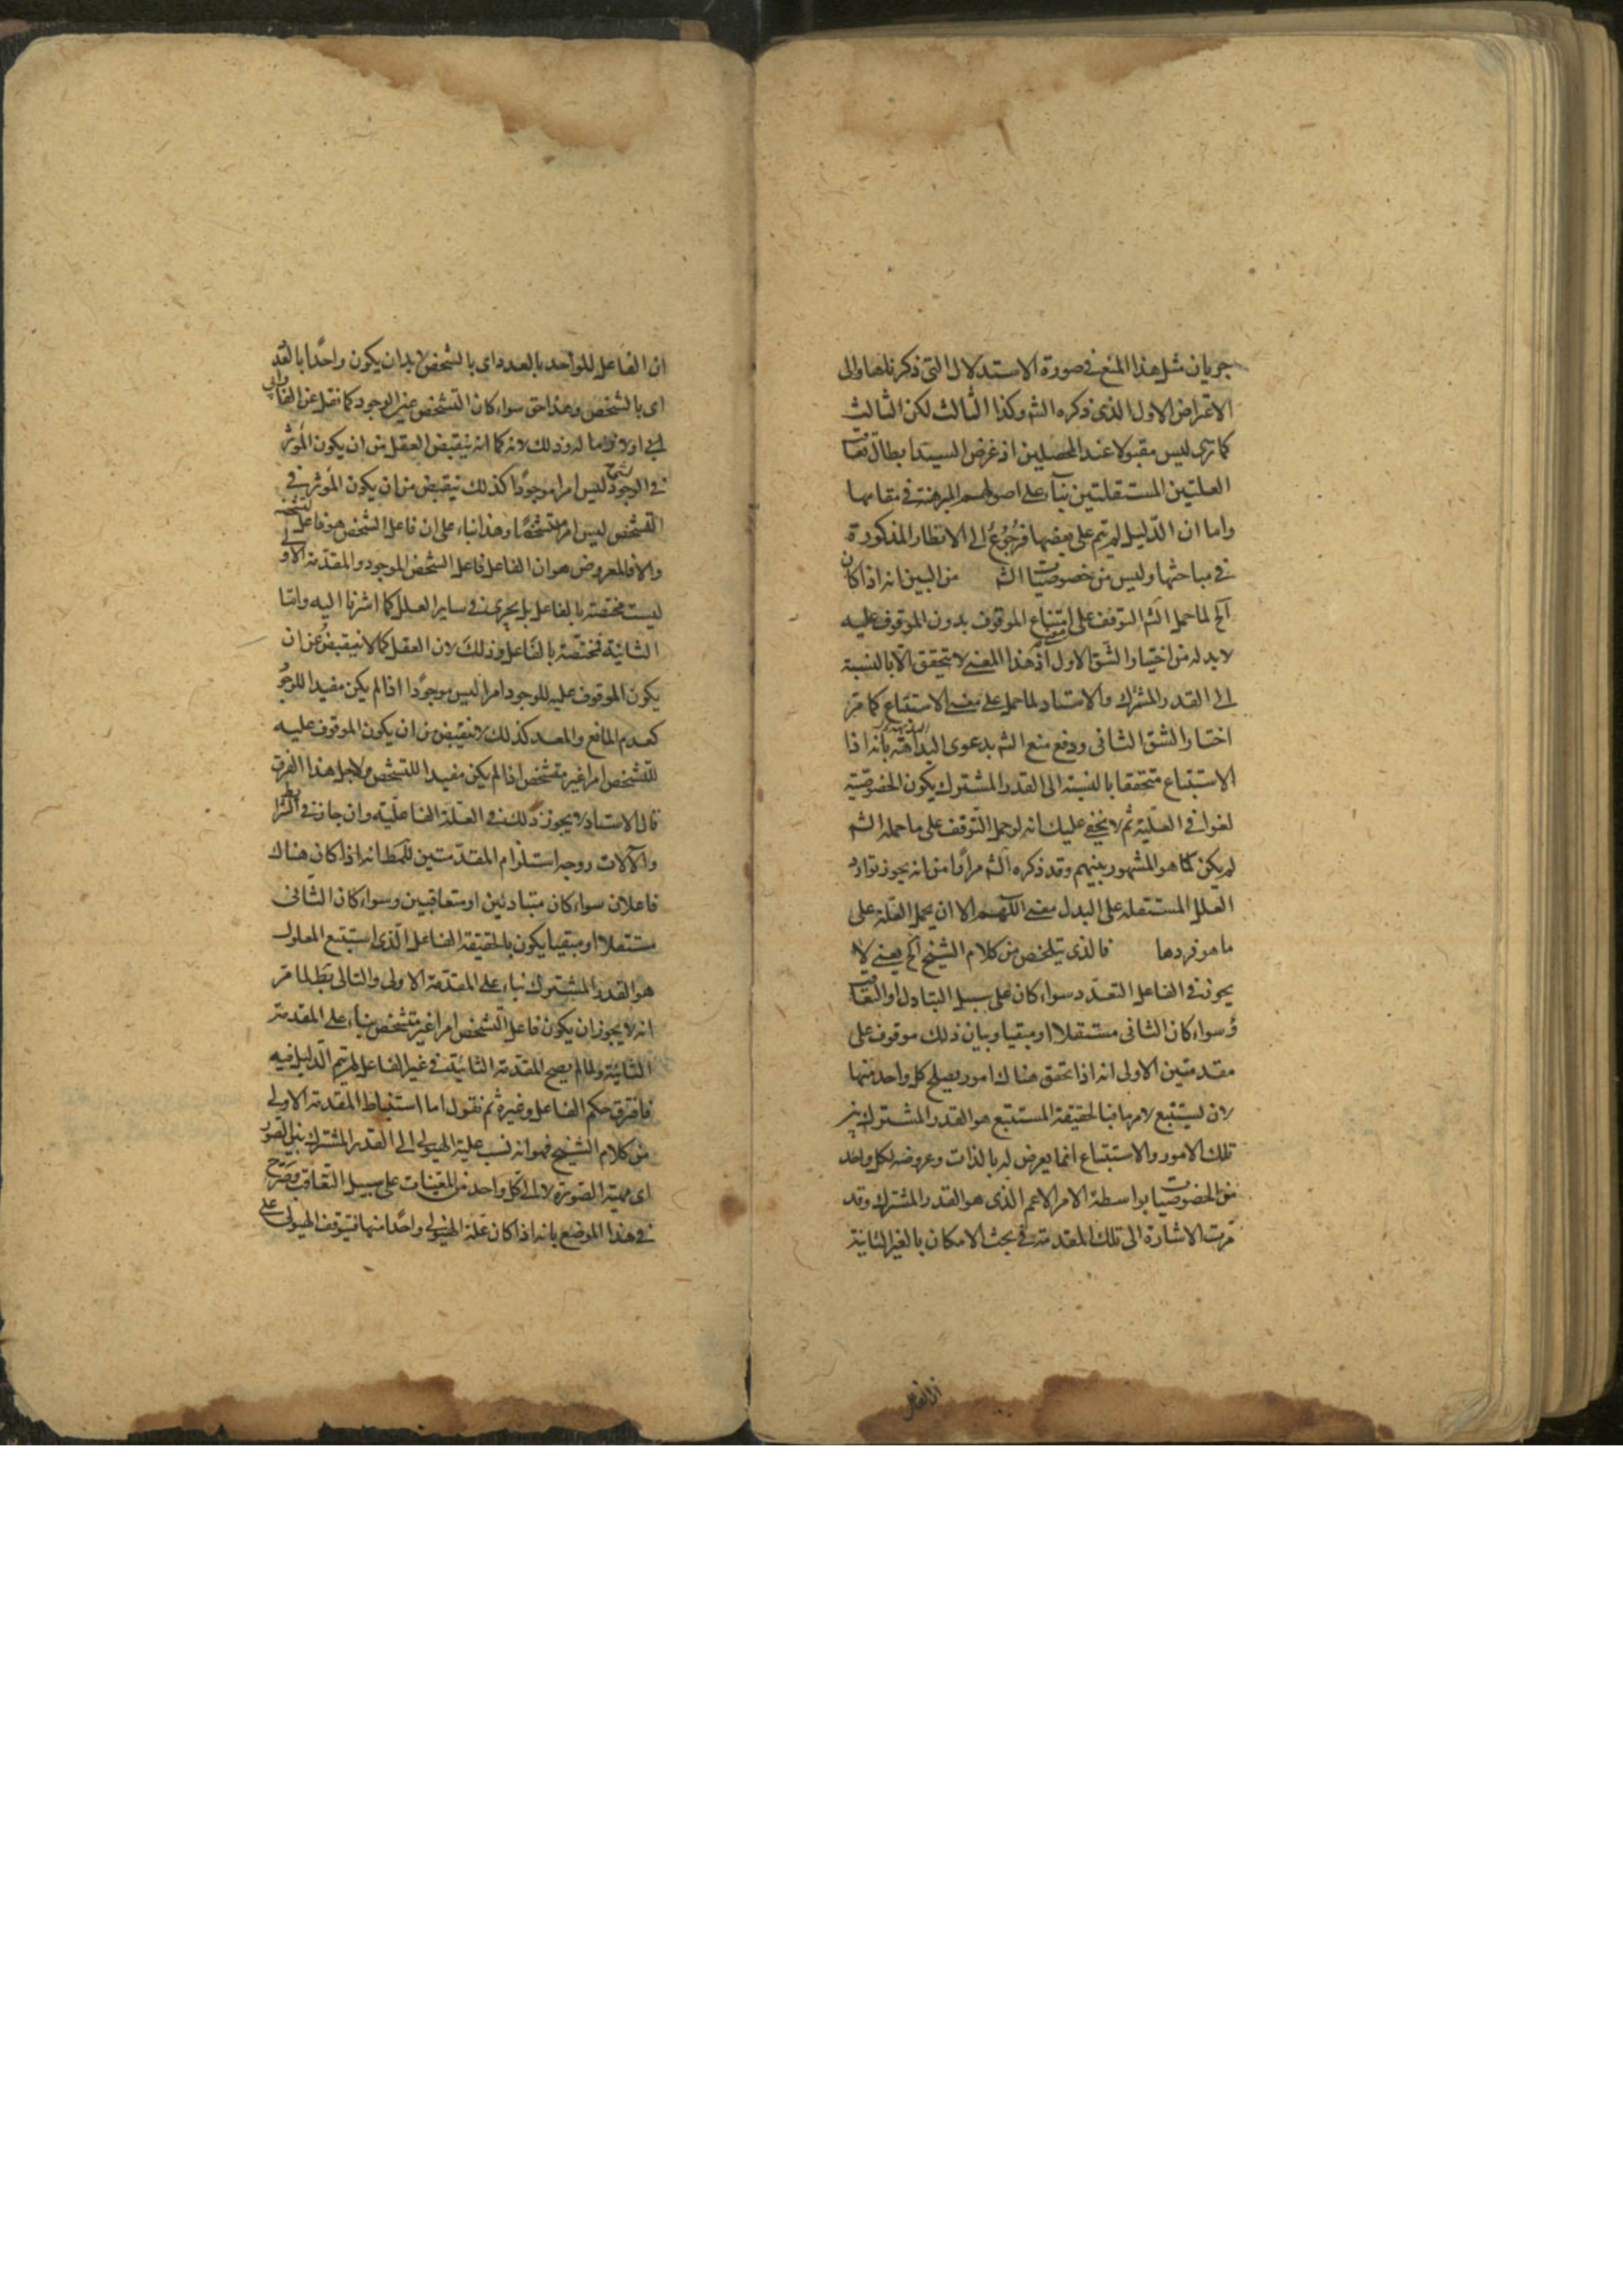 جريان مثل هذا المنع فى صورة الاستدلال التى ذكرناها والى
الاعتراض الاول الذى ذكره الشه وكذا الثالث لكن الثالث
كما ترى ليس مقبولا عند المحصلين اذ غرض السيد ابطال تعاقب
العلتين المستقلتين بناء على اصولهم المبرهنة فى مقامها
واما ان الدليل لم يتم على بعضها فرجوع الى الانظار المذكورة
فى مباحثها وليس من خصوصيات الشه من البين انه اذا كان
آلخ لما حمل الشه التوقف على امتناع الموقوف بدون الموقوف عليه
لا بد له من اختيار الشق الاول اذ هذا المعنى لا يتحقق الا بالنسبة
الى القدر المشترك والاستاد لما حمل على معنى الاستتباع كما مر
اختار الشق الثانى ودفع منع الشه بدعوى البداهة بانه اذا
الاستتباع متحققا بالنسبة الى القدر المشترك يكون الخصوصية
لغوا فى العلية ثم لا يخفى عليك انه لو حمل التوقف على ما حمله الشه
لم يكن كما هو المشهور بينهم وقد ذكره الشه مرارا من انه يجوز توارد
العلل المستقله على البدل معنى اللهم الا ان يحمل العلة على
ما هو فردها فالذى يتلخص من كلام الشيخ آلخ يعنى لا
يجوز فى الفاعل التعدد سواء كان على سبيل التبادل او التعاقب
وسواء كان الثانى مستقلا او مبقيا وبيان ذلك موقوف على
مقدمتين الاولى انه اذا تحقق هناك امور يصلح كل واحد منها
لان يستتبع لامر ما فبالحقيقة المستتبع هو القدر المشترك بين
تلك الامور والاستتباع انما يعرض له بالذات وعروضه لكل واحد
من الخصوصيات بواسطة الامر الاعم الذى هو القدر المشترك وقد
مرت الاشارة الى تلك المقدمة فى بحث الامكان بالغير الثانية
ان الفاعل
ان الفاعل للواحد بالعدد اى بالشخص لا بد ان يكون واحدا بالعدد
اى بالشخص وهذا حق سواء كان التشخص عين الوجود كما نقل عن الفارابى
او لازما له وذلك لانه كما انه ينقبض العقل من ان يكون المؤثر
فى الوجود ليس امرا موجودا كذلك ينقبض من ان يكون المؤثر فى
التشخص ليس امرا متشخصا وهذا بناء على ان فاعل الشخص هو فاعل لتشخصه
والا فالمعروض هو ان الفاعل فاعل الشخص الموجود والمقدمة الاولى
ليست مختصة بالفاعل بل يجرى فى ساير العلل كما اشرنا اليه واما
الثانية فمختصة بالفاعل وذلك لان العقل كما لا ينقبض عن ان
يكون الموقوف عليه للوجود امرا ليس موجودا اذا لم يكن مفيدا للوجود
كعدم المانع والمعد كذلك لا ينقبض من ان يكون الموقوف عليه
للتشخص امرا غير متشخص اذا لم يكن مفيدا للتشخص ولاجل هذا الفرق
قال الاستاد لا يجوز ذلك فى العلة الفاعلية وان جاز فى الشرايط
والآلات ووجه استلزام المقدمتين للمط انه اذا كان هناك
فاعلان سواء كان متبادلين او متعاقبين وسواء كان الثانى
مستقلا او مبقيا يكون بالحقيقة الفاعل الذى استتبع المعلول
هو القدر المشترك بناء على المقدمة الاولى والتالى بط لما مر
انه لا يجوز ان يكون فاعل الشخص امرا غير متشخص بناء على المقدمة
الثانية ولما لم يصح المقدمة الثانية فى غير الفاعل لم يتم الدليل فيه
فافترق حكم الفاعل وغيره ثم نقول اما استنباط المقدمة الاولى
من كلام الشيخ فهو انه نسب علية الهيولى الى القدر المشترك بين الصور
اى مهية الصورة لا الى كل واحد من المعينات على سبيل التعاقب وصرح
فى هذا الموضع بانه اذا كان علة الهيولى واحدا منها فيتوقف الهيولى على